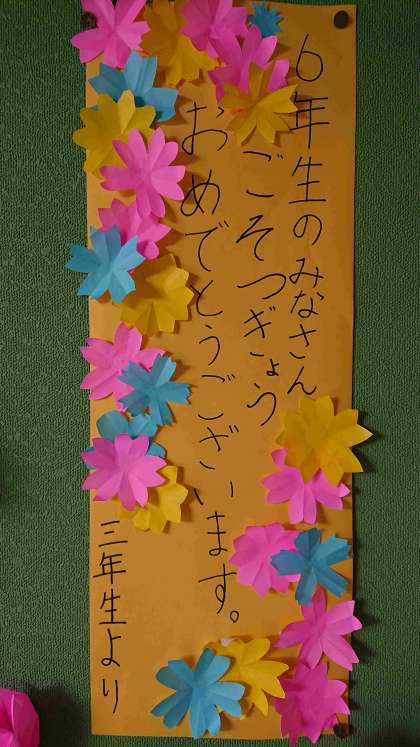 6年生のみなさん
ごそつぎょう
おめでとうございます。
三年生より